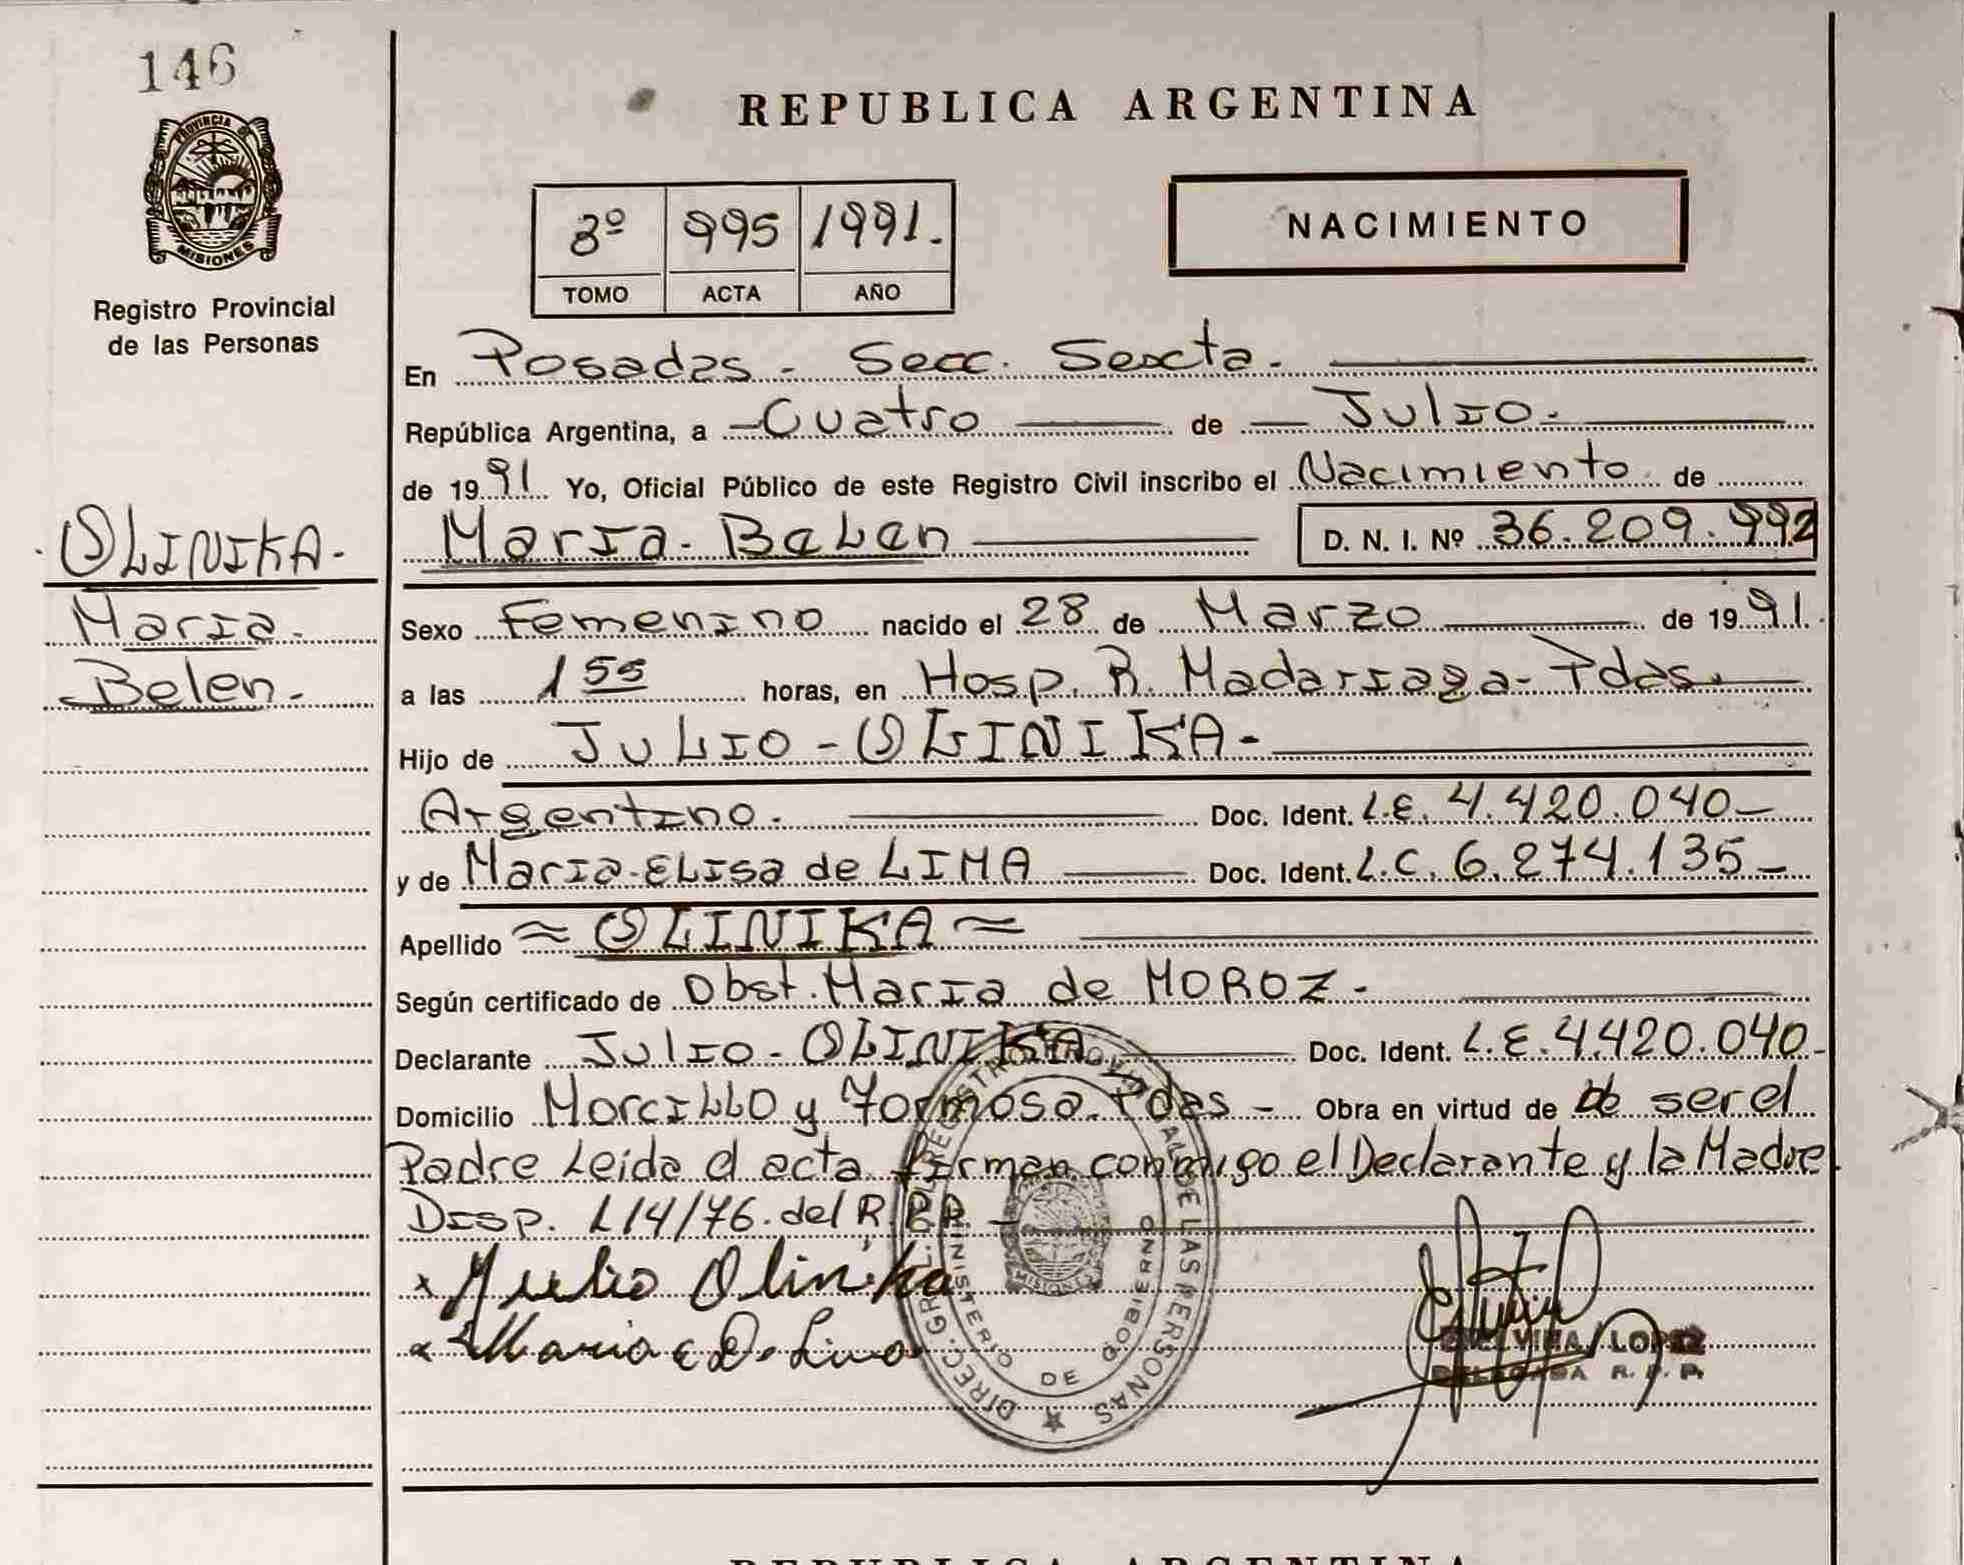 146
PROVINCIA DE
MISIONES
Registro Provincial
de las Personas
OLINIKA-
Maria
Belen-
REPUBLICA ARGENTINA
3º 995 1991.
TOMO ACTA AÑO
NACIMIENTO
En Posadas - Secc. Sexta.
República Argentina, a Cuatro de Julio-
de 1991 Yo, Oficial Público de este Registro Civil inscribo el Nacimiento de
Maria-Belen D. N. I. Nº 36.209.992
Sexo Femenino nacido el 28 de Marzo de 1991.
a las 1 55 horas, en Hosp. R. Madariaga-Pdas.
Hijo de JULIO-OLINIKA-
Argentino. Doc. Ident. L.E. 4.420.040-
y de Maria-Elisa de LIMA Doc. Ident. L.C. 6.274.135-
Apellido ≈ OLINIKA ≈
Según certificado de Obst. Maria de MOROZ-
Declarante Julio-OLINIKA Doc. Ident. L.E. 4.420.040-
Domicilio Morcillo y Formosa. Pdas- Obra en virtud de de ser el
Padre Leida el acta firman conmigo el Declarante y la Madre.
Disp. 114/76. del R.P.P. -
x Julio Olinika
x Maria E D. Lima
DIREC. GRAL. DEL REGISTRO PROVINCIAL DE LAS PERSONAS
MINISTERIO DE GOBIERNO
MISIONES
LOPEZ
DELEGADA R. P. P.
REPUBLICA ARGENTINA